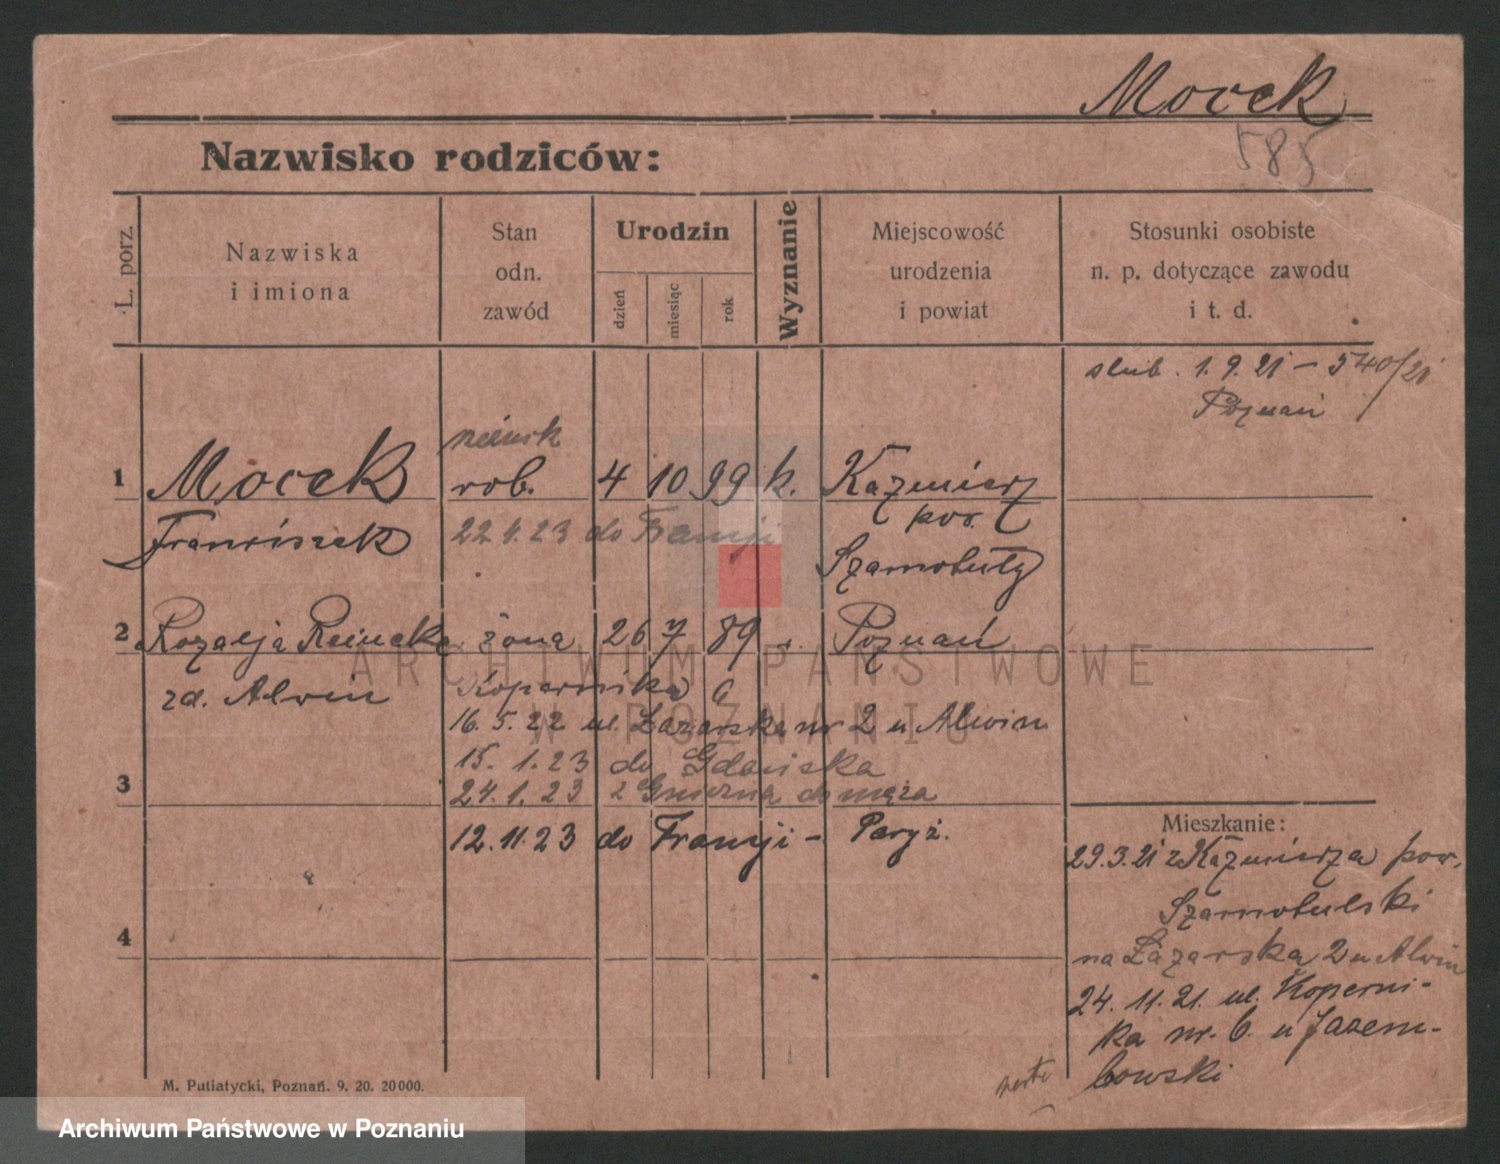 Mocek
585
Nazwisko rodziców:
L. porz.
Nazwiska
i imiona
Stan
odn.
zawód
Urodzin
dzień
miesiąc
rok
Wyznanie
Miejscowość
urodzenia
i powiat
Stosunki osobiste
n. p. dotyczące zawodu
i t. d.
slub. 1.9.21 – 540/21
Poznań
1 Mocek rob. 4 10 99 k. Kaźmierz
pow.
Franciszek 22.1.23 do Francji
Szamotuły
2 Rozalja Reinecke żona 26 7 89 Poznań
zd. Alwin Kopernika 6
16.5.22 ul. Łazarska nr 2 u Alwin
15.1.23 do Gdańska
3 24.1.23 z Gniezna do męża
12.11.23 do Francji – Paryż.
Mieszkanie:
29.3.21 z Kaźmierza pow.
Szamotulski
4
na Łazarska 2 u Alwin
24.11.21. ul. Koperni-
ka nr. 6. u Jazem-
bowski
M. Putiatycki, Poznań. 9. 20. 20000.
ARCHIWUM PAŃSTWOWE
W POZNANIU
Archiwum Państwowe w Poznaniu